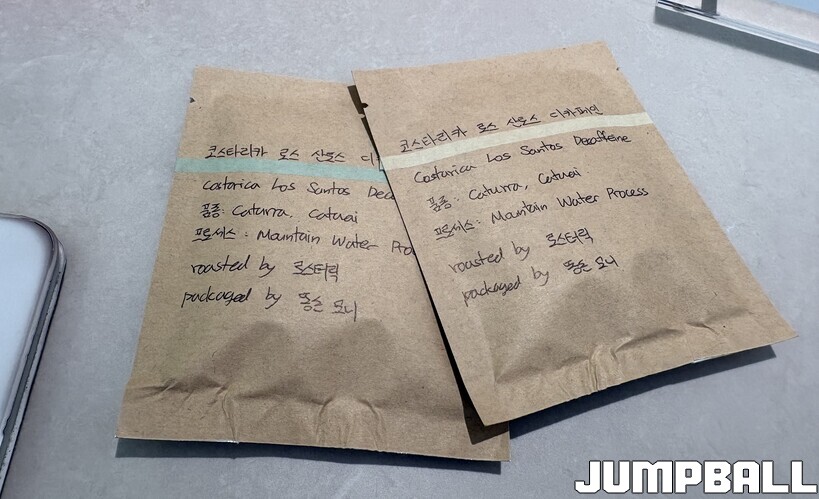 코스타리카 로스 산토스 디
Costarica Los Santos Deca
품종: Caturra, Catuai
프로세스: Mountain Water Pro
roasted by 로스터릭
packaged by 똥손 모니
코스타리카 로스 산토스 디카페인
Costarica Los Santos Decaffeine
품종: Caturra, Catuai
프로세스: Mountain Water Process
roasted by 로스터릭
packaged by 똥손 모니
JUMPBALL